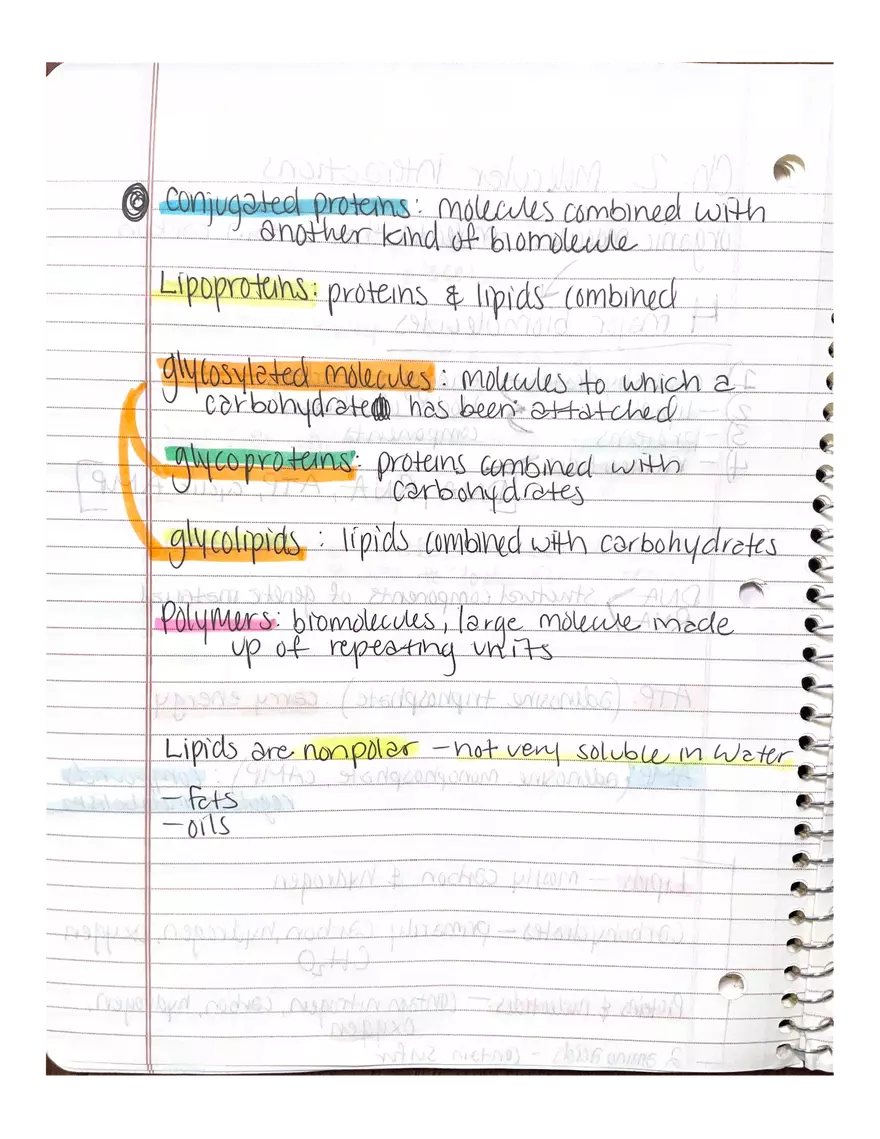 conjugated proteins: molecules combined with
another kind of biomolecule
Lipoproteins: proteins & lipids combined
glycosylated molecules: molecules to which a
carbohydrate has been attatched
glycoproteins: proteins combined with
carbohydrates
glycolipids : lipids combined with carbohydrates
Polymers: biomolecules, large molecule made
up of repeating units
Lipids are nonpolar - not very soluble in water
- fats
- oils